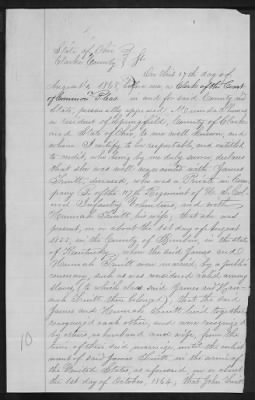 State of Ohio }
Clarke County } ss
On this 17th day of
August 1868, before me, a Clerk of the Court
of Common Pleas in and for said County and
State, personally appeared
a resident of Springfield, County of Clarke
and State of Ohio, to me well known, and
whom I certify to be reputable, and entitled
to credit, who being by me duly sworn, declares
that she was well acquainted with James
deceased, who was a Private in Com-
pany of the 117th Regiment of U. S. Col-
ored Infantry Volunteers, and with
Hannah his wife; that she was
present, in or about the 1st day of August
in the County of in the State
of Kentucky, when the said James and
Hannah were married, by a public
ceremony, such as was considered valid among
slaves, (to which class said James and Hannah
then belonged), that the said
James and Hannah lived together,
recognized each other, and were recognized
by others as husband and wife, from the
time of their said marriage, until the enlist-
ment of said James in the army of
the United States as aforesaid, in or about
the 1st day of October, 1864, that John
10